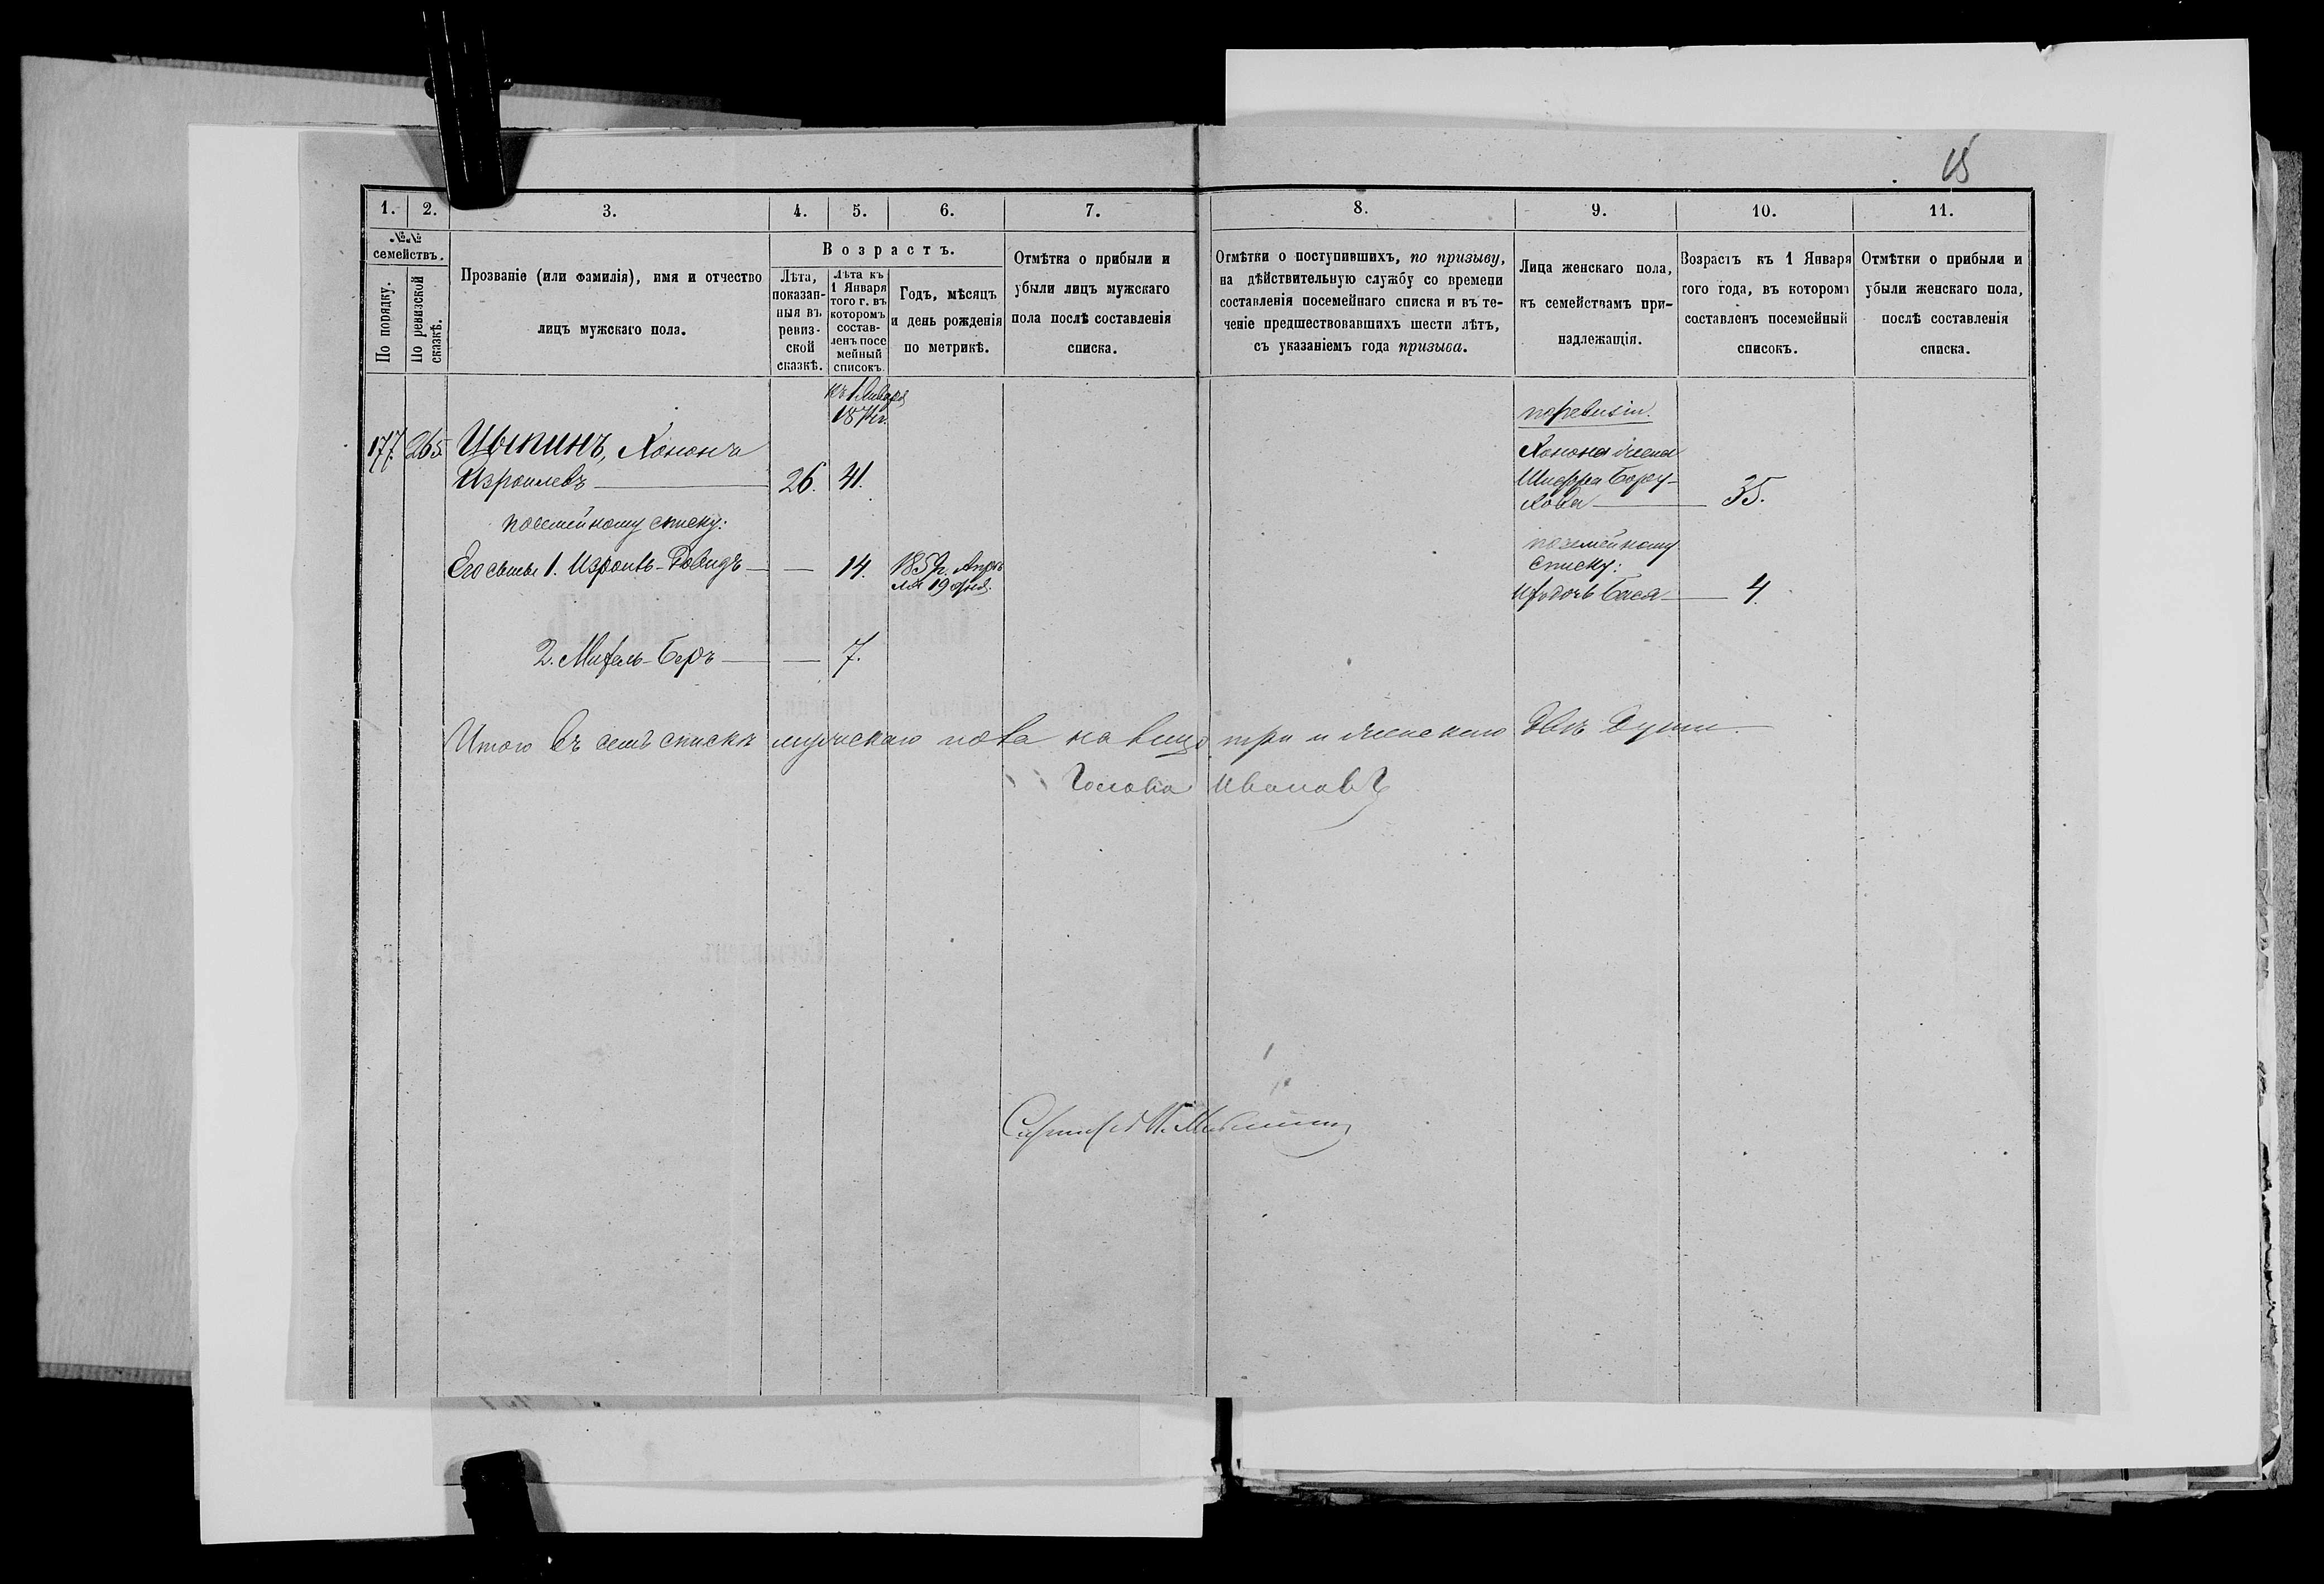 15
1. 2. 3. 4. 5. 6. 7. 8. 9. 10. 11.
№№ семействъ.
По порядку.
По ревизской сказкѣ.
Прозваніе (или фамилія), имя и отчество
лицъ мужскаго пола.
Возрастъ.
Лѣта,
показан-
ныя въ
ревиз-
ской
сказкѣ.
Лѣта къ
1 Января
того г. въ
которомъ
состав-
ленъ посе
мейный
списокъ.
Годъ, мѣсяцъ
и день рожденія
по метрикѣ.
Отмѣтка о прибыли и
убыли лицъ мужскаго
пола послѣ составленія
списка.
Отмѣтки о поступившихъ, по призыву,
на дѣйствительную службу со времени
составленія посемейнаго списка и въ те-
ченіе предшествовавшихъ шести лѣтъ,
съ указаніемъ года призыва.
Лица женскаго пола,
къ семействамъ при-
надлежащія.
Возрастъ къ 1 Января
того года, въ которомъ
составленъ посемейный
списокъ.
Отмѣтки о прибыли и
убыли женскаго пола,
послѣ составленія
списка.
къ 1 Января
1874г.
177. 265 Цыпинъ, Хонона
Израилевъ 26. 41.
посемейному списку:
Его сынъ 1. Израиль-Довидъ — 14. 185 г. Апрѣ
ля 19 дня.
2. Михель-Беръ — 7.
по ревизіи.
Хонона жена
Шифра Бору-
хова 35.
посемейному
списку:
Ихъ дочь Бася 4.
Итого въ семъ спискѣ мужскаго пола на лицо три и женскаго двѣ души.
Голова Ивановъ